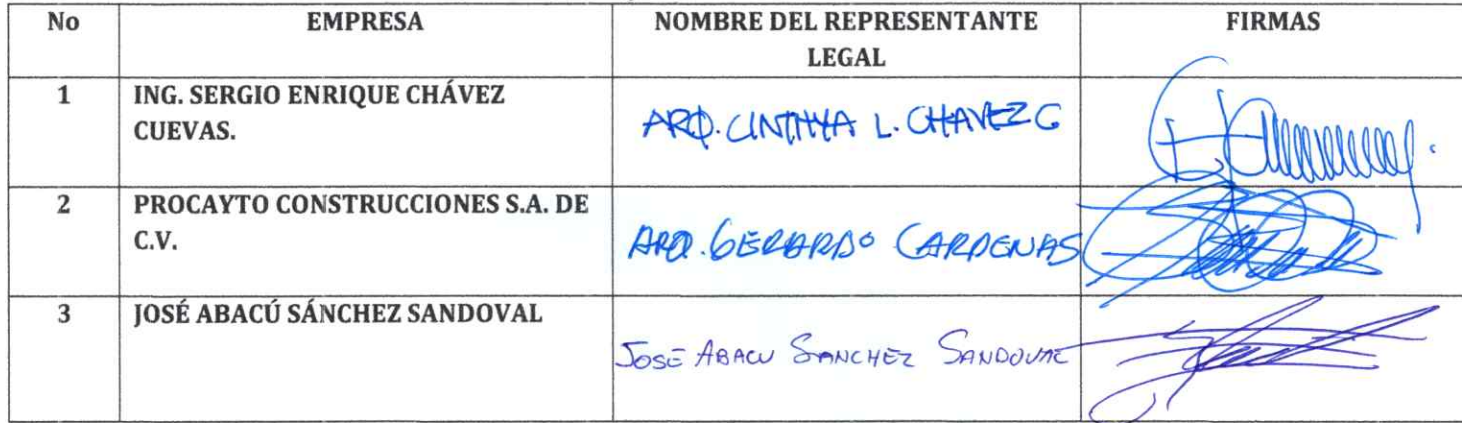 No EMPRESA NOMBRE DEL REPRESENTANTE FIRMAS
LEGAL
1 ING. SERGIO ENRIQUE CHÁVEZ
CUEVAS.
ARQ. CINTHYA L. CHAVEZ G
2 PROCAYTO CONSTRUCCIONES S.A. DE
C.V.
ARQ. GERARDO CARDENAS
3 JOSÉ ABACÚ SÁNCHEZ SANDOVAL
JOSE ABACU SANCHEZ SANDOVAL